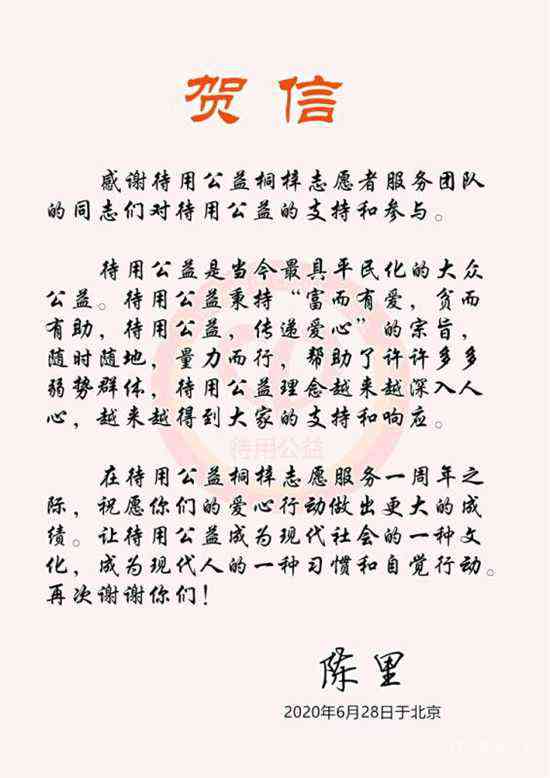 贺信
感谢待用公益桐梓志愿者服务团队
的同志们对待用公益的支持和参与。
待用公益是当今最具平民化的大众
公益。待用公益秉持“富而有爱，贫而
有助，待用公益，传递爱心”的宗旨，
随时随地，量力而行，帮助了许许多多
弱势群体，待用公益理念越来越深入人
心，越来越得到大家的支持和响应。
待用公益
在待用公益桐梓志愿服务一周年之
际，祝愿你们的爱心行动做出更大的成
绩。让待用公益成为现代社会的一种文
化，成为现代人的一种习惯和自觉行动。
再次谢谢你们！
陈里
2020年6月28日于北京